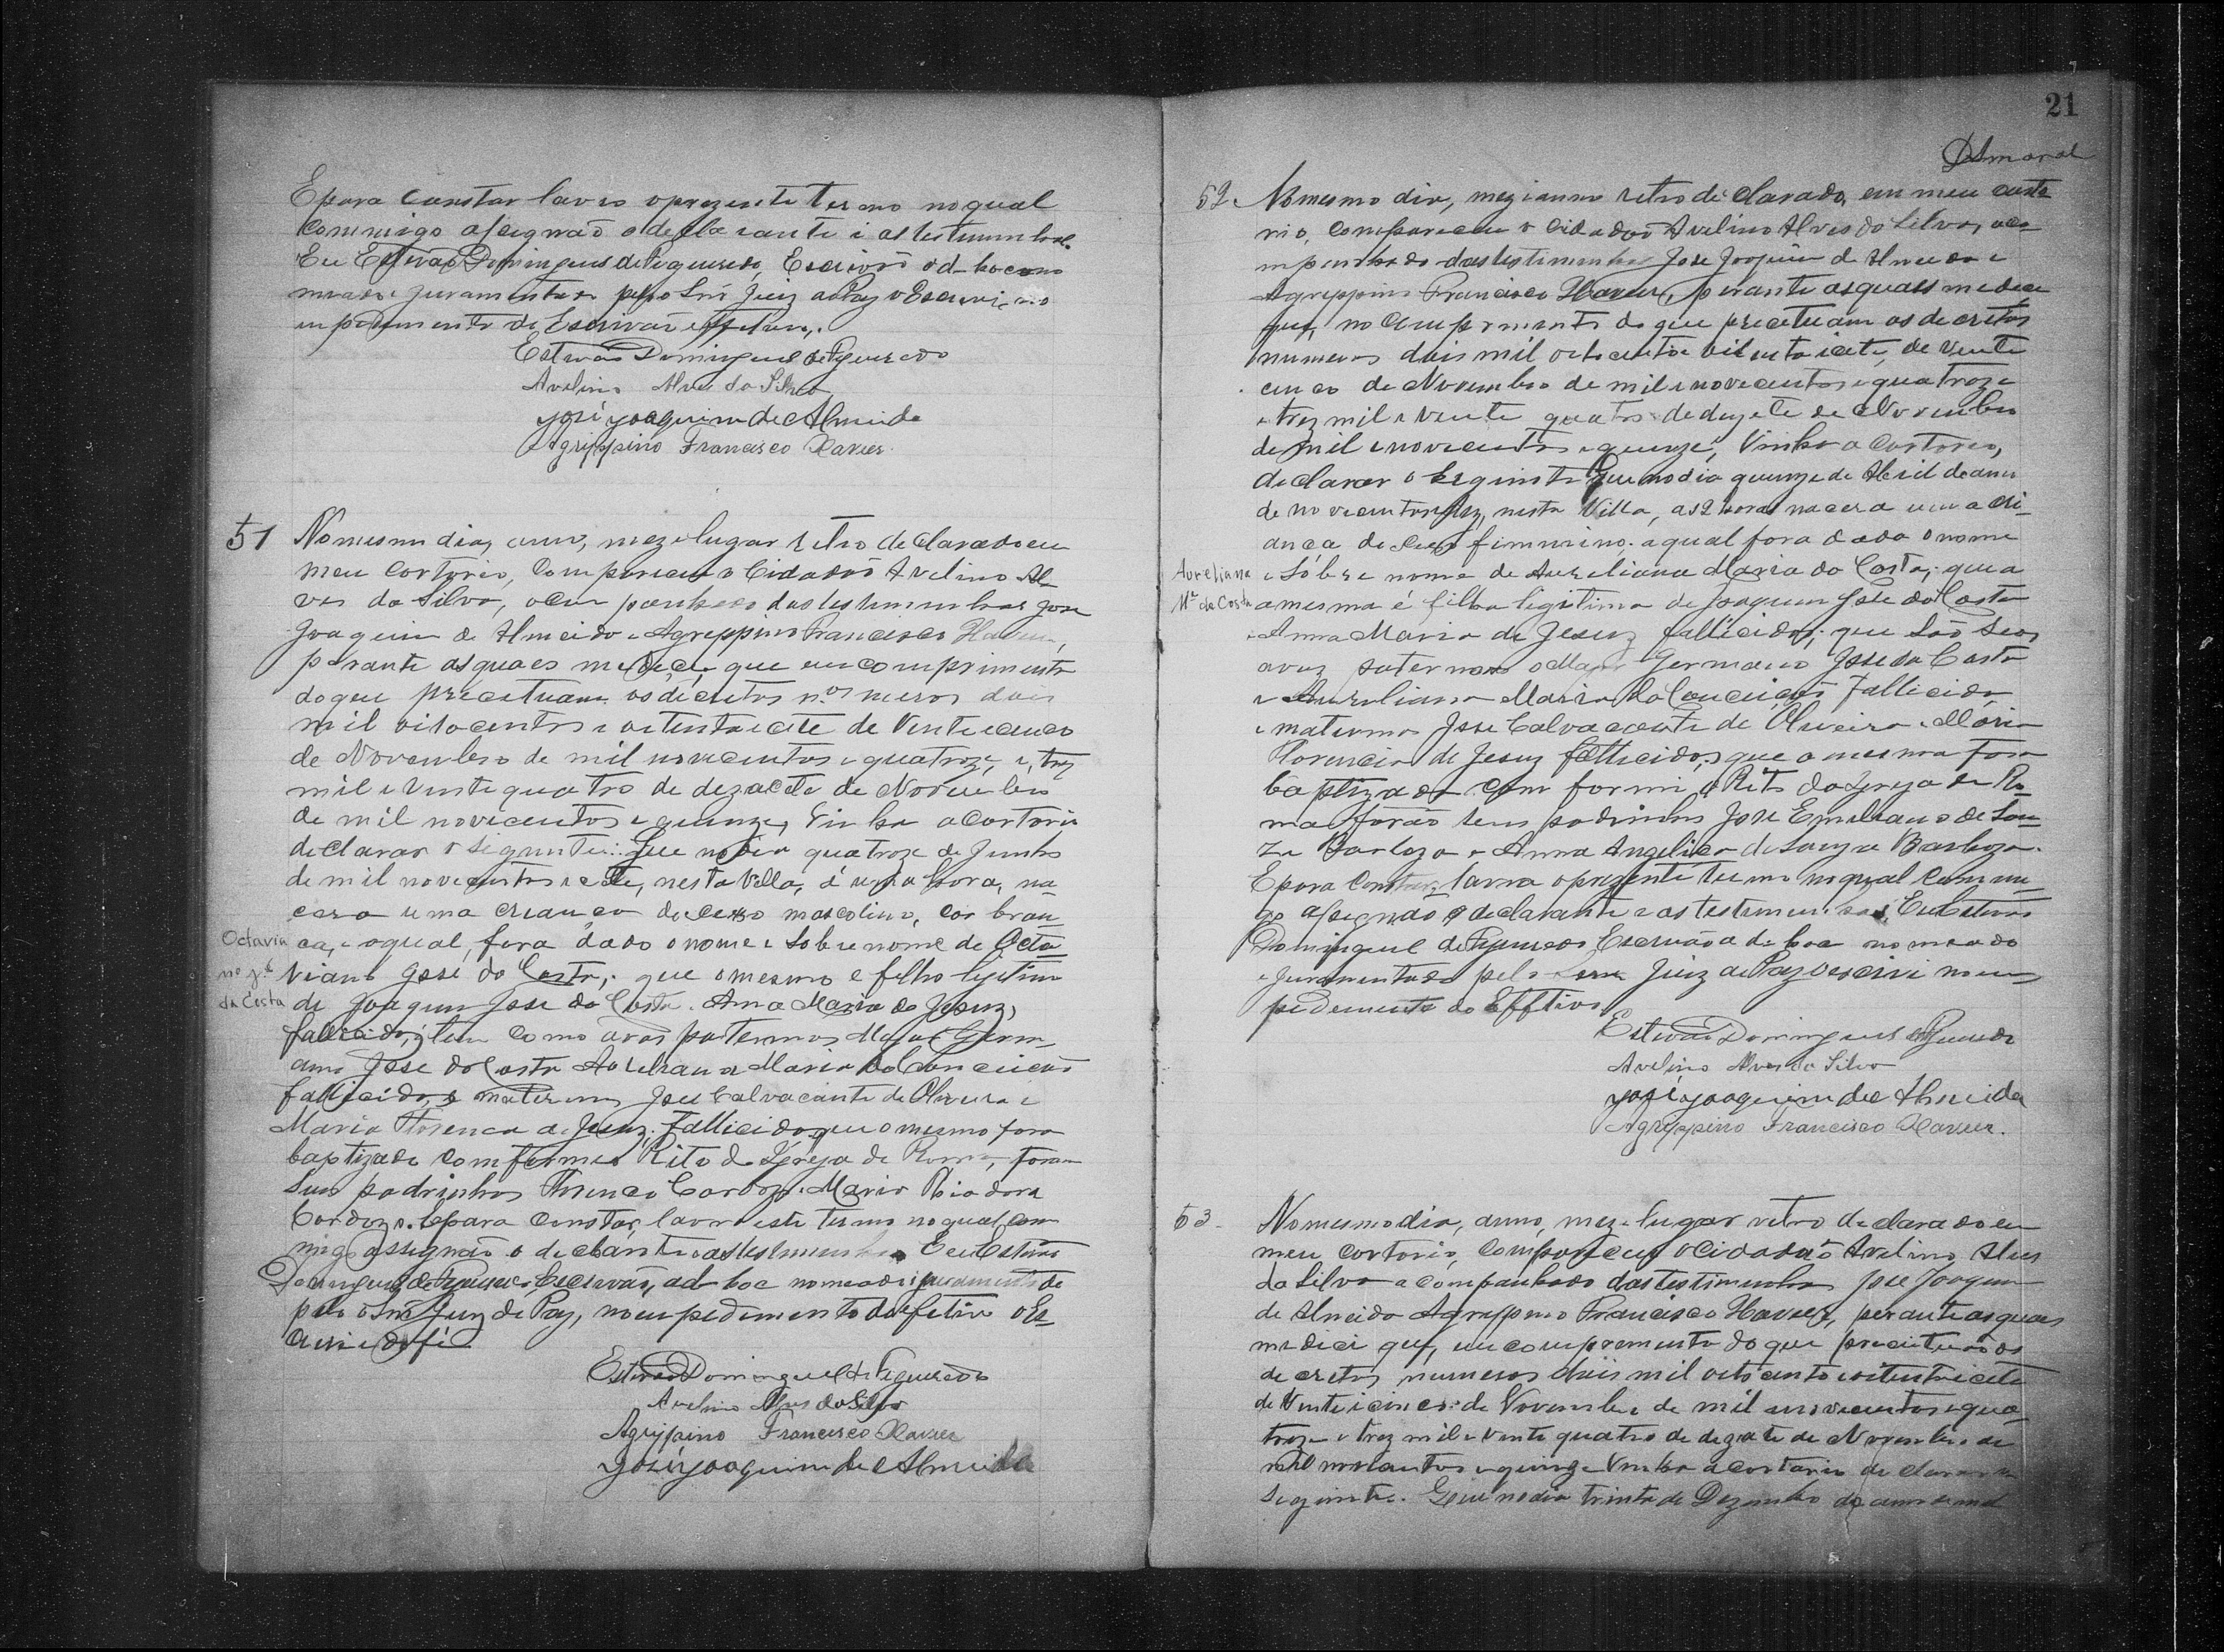 Epara constar lavro oprezente termo noqual
Commigo assignão odeclarante e as testimunhas.
Eu Estevão Domingues de Figueredo, Escrivão ad-hoc no
meado e juramentado pelo Snr Juiz de Paz o Escrevi, no
empedimento do Escrivão effetivo,.
Estevão Domingues de Figueredo
Avelino Alves da Silva
José Joaquim de Almeida
Agrippino Francisco Xavier.
51 Nomesmo dia, anno, mez e lugar retro declarado em
meu cortorio, Compareceu o Cidadão Avelino Al-
ves da Silva, acompanhado das testimunhas Jose
Joaquim de Almeida e Agreppino Francisco Xavier,
perante asquaes medice, que em comprimento
doque precetuam os decretos n.os meros dois
mil oitocentos e oitentaicete de Vinteecinco
de Novembro de mil novecentos e quatroze, e, trez
mil e vinte quatro de dezacete de Novembro
de mil novecentos e quinze, Vinha a Cortorio
declarar o siguinte: Que nodia quatroze de Junho
de mil novecentos e cete, nesta Villa, á uma hora, na-
cera uma creança de cexo mascolino, cor bran-
ca, e aqual, fora dado o nome e sobre nome de Octa-
viano José da Costa; que o mesmo e filho legitimo
de Joaquim Jose da Costa e Anna Maria de Jesuz,
fallicido, tem como avos paternos Major Germ-
ano Jose da Costa Aureliana Maria da Conceicão
fallicidos, e maternos Jose Calvacante de Oliveira e
Maria Florença de Jesuz, fallicidos, que o mesmo fora
baptizado comforme o Rito da Igreja de Roma, foram
seus padrinhos Florenço Cardozo e Maria Theadora
Cardozo. Epara constar, lavro este termo noqual com-
migo assignão o declarante e as testimunhas. Eu Estevão
Domingues de Figueredo, Escrivão, ad-hoc nomeado e juramentado
pelo Snr Juiz de Paz, no empedimento do effetivo o Es-
crevi e dou fé
Octavia
no J.e
da Costa
Estevão Domingues de Figueredo
Avelino Alves da Silva
Agrippino Francisco Xavier
José Joaquim de Almeida
21
Amaral
52. Nomesmo dia, mez e anno retro declarado, em meu corto-
rio, compareceu o Cidadão Avelino Alves da Silva, aco-
mpanhado das testimunhas Jose Joaquim de Almeida e
Agreppino Francisco Xavier, perante asquaes medice
que, no comprimento do que precetuam os decretos
numeros dois mil oitocentos oitentaicete, de vinte
cinco de Novembro de mil e novecentos e quatroze
e trez mil e vinte quatro de dezacete de Novembro
de mil e novecentos e quinze, Vinha a Cortorio,
declarar o seguinte Que nodia quinze de Abril do anno
de novecentos e dez, nesta Villa, as 2 horas nacera uma cri-
ança de cexo feminino; aqual fora dado o nome
e sobre nome de Aureliana Maria da Costa; que a
amesma é filha legitima de Joaquim Jose da Costa
e Anna Maria de Jesuz fallicidos; que são seos
avoz paternos o Major Germano Jose da Costa
e Aureliana Maria da Conceição fallicida
e maternos Jose Calvacante de Oliveira e Maria
Florencia de Jesuz fallicidos; que a mesma fora
baptizada com forme o Rito da Igreja de Ro-
ma forão seus padrinhos Jose Emiliano de Sou-
za Barboza e Anna Angelica de Souza Barboza.
Epara constar, lavra oprezente termo noqual commi-
go assegnão o declarante e as testimunhas, Eu Estevão
Domingues de Figueredo Escrivão ad-hoc nomeado
e juramentado pelo Senr Juiz de Paz o escrevi no em-
pedemento do Effetivo
Aureliana
M.a da Costa
Estevão Domingues de Figueredo
Avelino Alves da Silva
José Joaquim de Almeida
Agrippino Francisco Xavier.
53. Nomesmo dia, anno, mez e lugar retro declarado em
meu cortorio, compareceu o cidadão Avelino Alves
da Silva acompanhado das testimunhas Jose Joaquim
de Almeida Agreppino Francisco Xavier, perante asquaes
medice que, em comprimento do que precetuão os
decretos numeros dois mil oitocentos e oitentaicete
de Vinte e cinco de Novembro de mil e novecentos e qua-
troze e trez mil e vinte quatro de dezacete de Novembro de
mil novecentos e quinze Vinha a cortorio declarar o
seguinte. Que nodia trinta de Dezembro do anno de mil